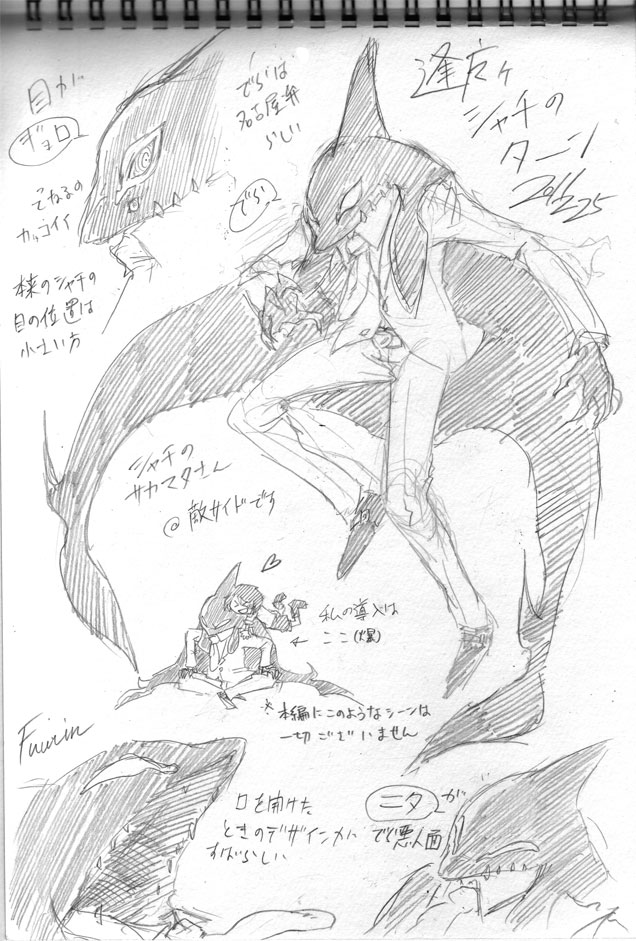 目が
ギョロ
てなるの
カッコイイ
本来のシャチの
目の位置は
小さい方
でらは
名古屋弁
らしい
でら
シャチの
ターン
シャチの
サカマタさん
@敵サイドです
私の導入は
←ここ(爆)
※本編にこのようなシーンは
一切ございません
Fuurin
口を開けた
ときのデザインが
すばらしい
ニタが
で悪人面